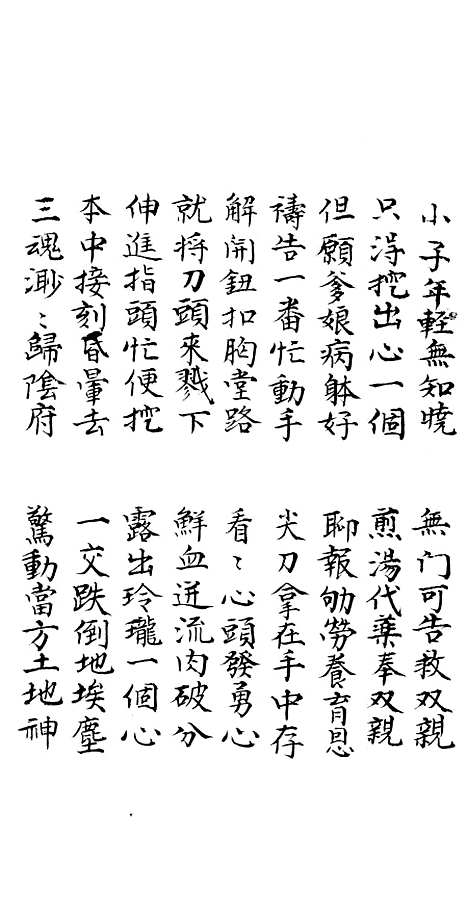 小子年輕無知曉 無门可告救双親
只淂挖出心一個 煎湯代藥奉双親
但願爹娘病躰好 聊報劬勞養育恩
禱告一番忙動手 尖刀拿在手中存
解開鈕扣胸堂路 看〻心頭發勇心
就将刀頭來戮下 鮮血迸流肉破分
伸進指頭忙便挖 露出玲瓏一個心
本中接刻昏暈去 一交跌倒地埃塵
三魂渺〻歸陰府 驚動當方土地神